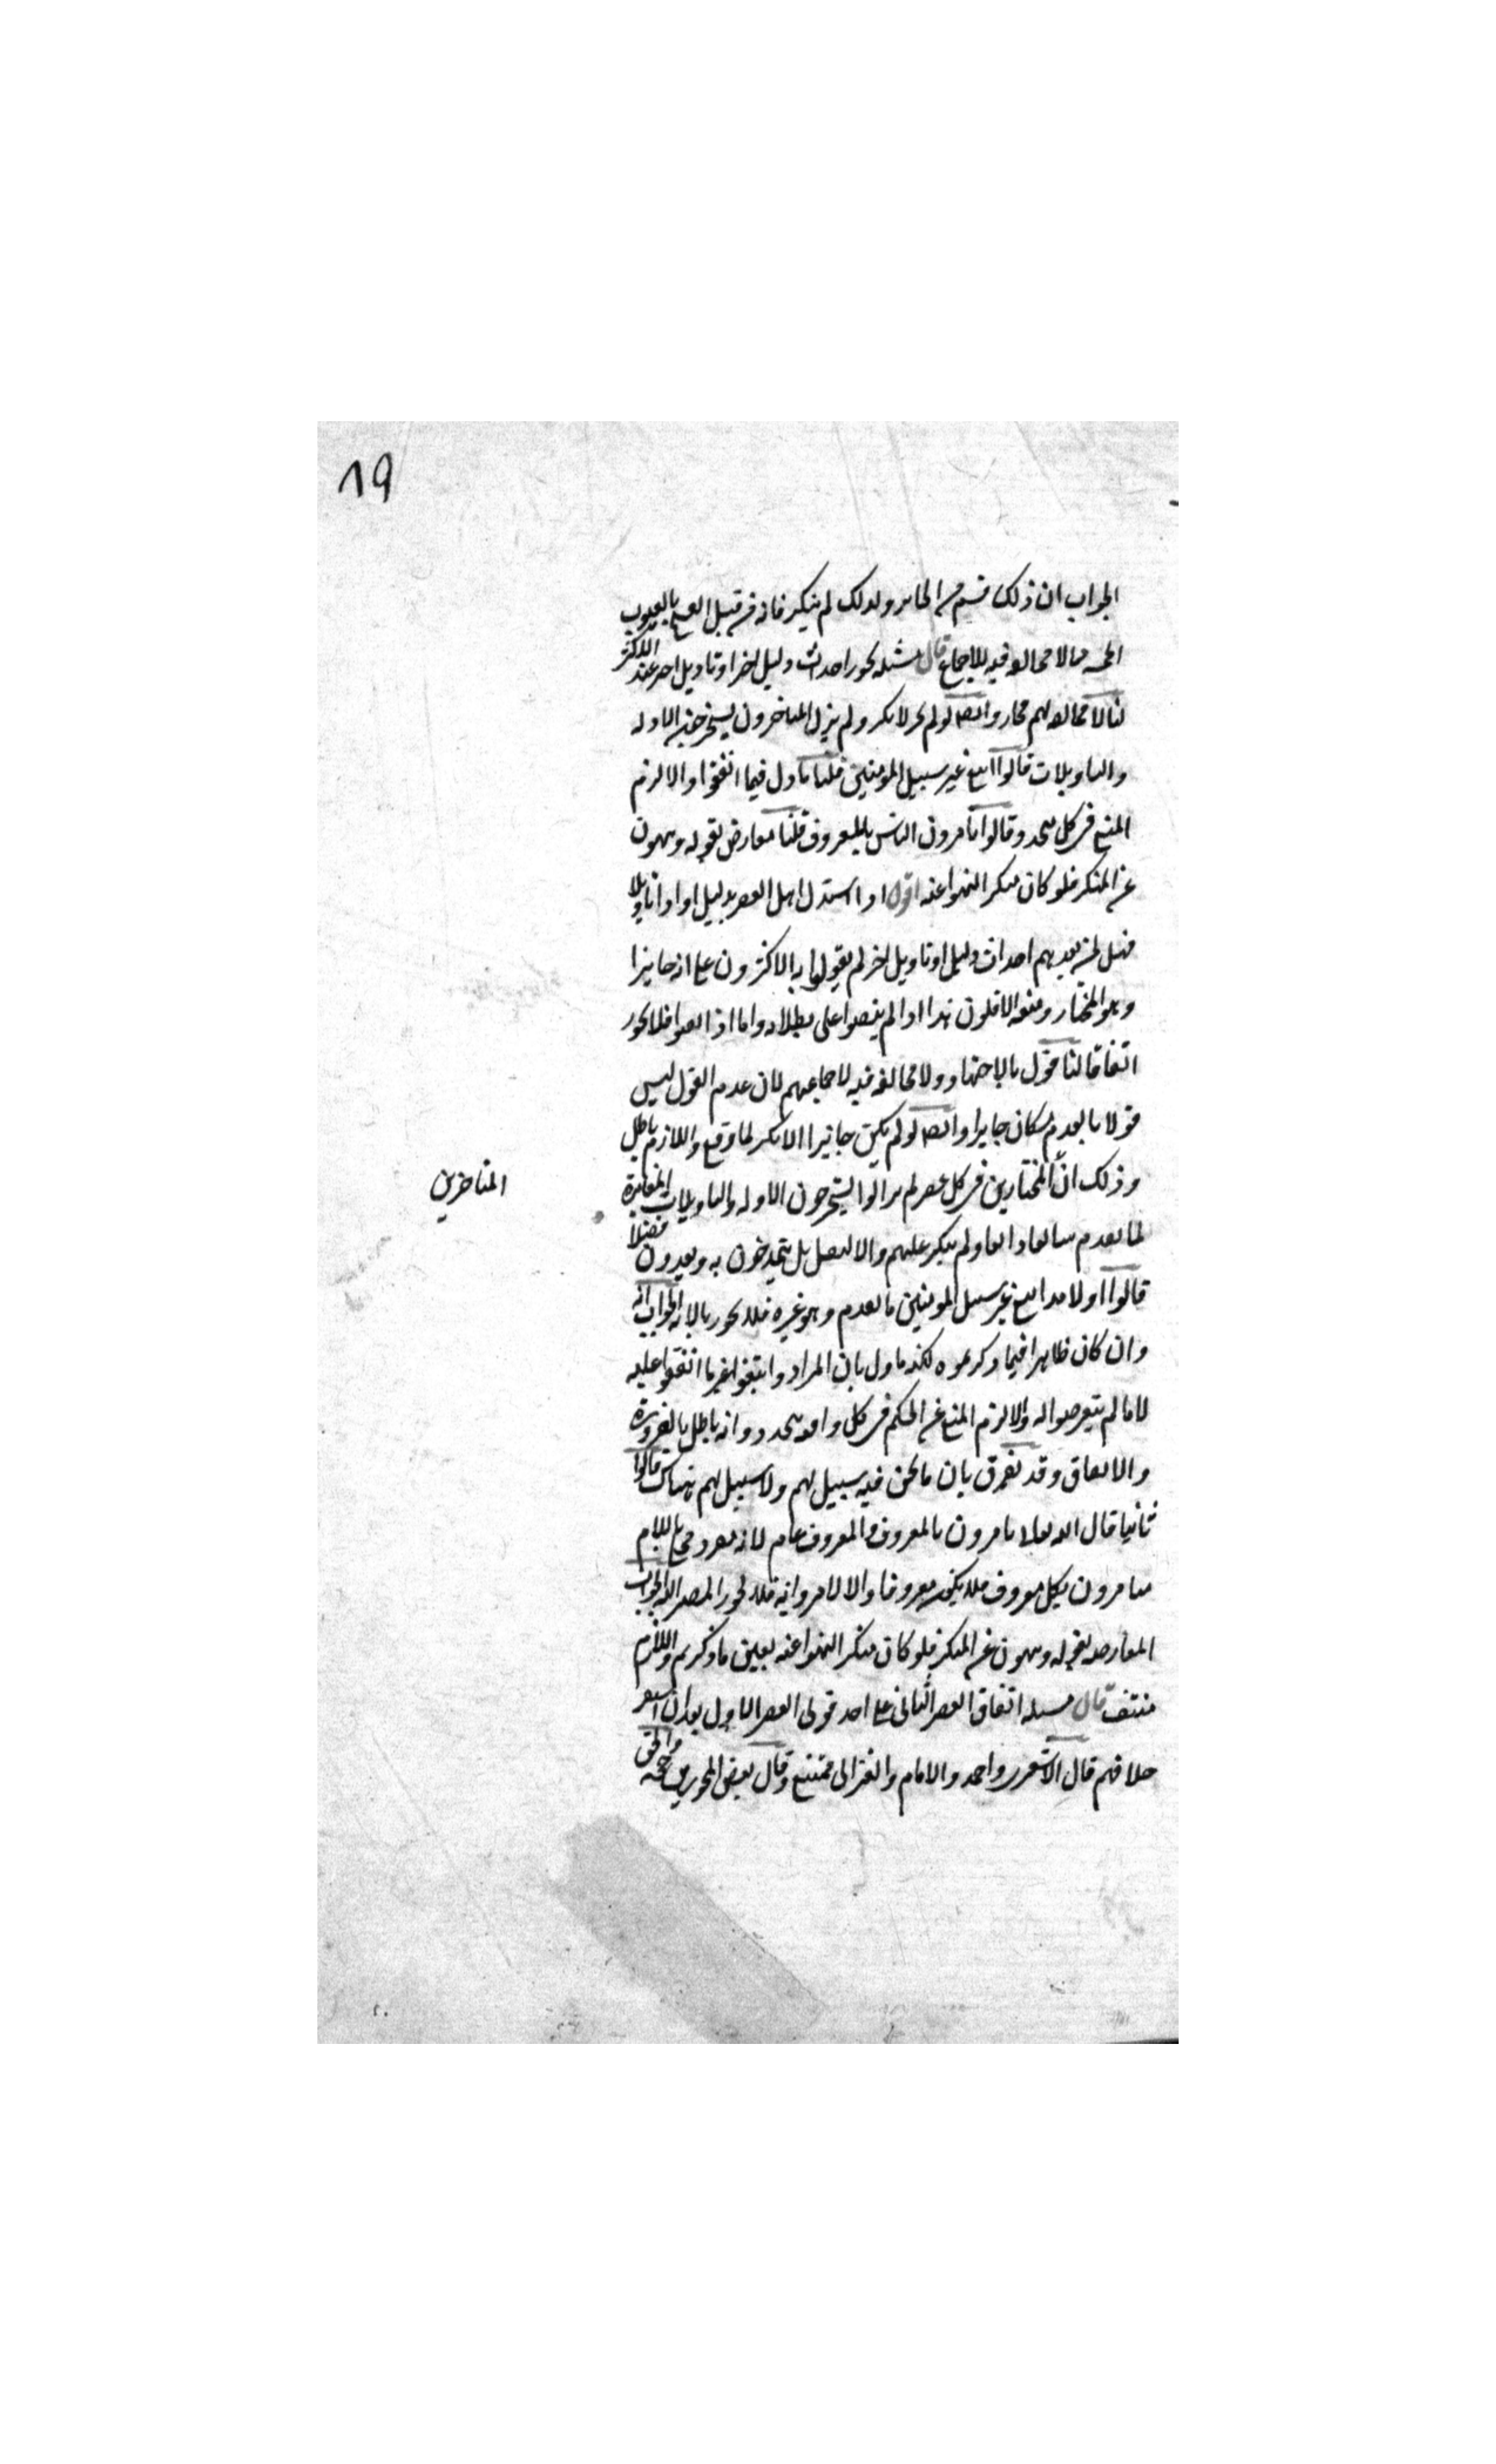 19
الجواب ان ذلك قسم من الجائز ولذلك لم ينكر فانه من قبيل الفسخ بالعيوب
الخمسة مما لا مخالفة فيه للاجماع قال مسئلة يجوز احداث دليل اخر او تاويل اخر عند الاكثر
لنا لا مخالفة لهم فجاز وايضا لو لم يجز لانكر ولم يزل المتاخرون يستخرجون الادلة
والتاويلات قالوا اتبع غير سبيل المؤمنين قلنا ماول فيما اتفقوا والا لزم
المنع في كل متجدد وقالوا تامرون الناس بالمعروف قلنا معارض بقوله وتنهون
عن المنكر فلو كان منكرا لنهوا عنه اقول اذا استدل اهل العصر بدليل او اولوا تاويلا
فهل لمن بعدهم احداث دليل او تاويل اخر لم يقولوا به الاكثرون على انه جايز
وهو المختار ومنعه الاقلون هذا اذا لم ينصوا على بطلانه واما اذا نصوا فلا يجوز
اتفاقا لنا قول بالاجتهاد ولا مخالفة فيه لاجماعهم لان عدم القول ليس
قولا بالعدم فكان جايزا وايضا لو لم يكن جائزا لانكر لما وقع واللازم باطل
وذلك ان المختارين في كل عصر لم يزالوا يستخرجون الادلة والتاويلات المغايرة
المتاخرين
لما تقدم شائعا ذائعا ولم ينكر عليهم والا لنقل بل يتمدحون به ويعدون فضلا
قالوا اولا هذا اتبع غير سبيل المؤمنين ما تقدم وهو غيره فلا يجوز بالاية الجواب انه
وان كان ظاهرا فيما ذكرتموه لكنه ماول بان المراد واتبعوا غير ما اتفقوا عليه
لا ما لم يتعرضوا له والا لزم المنع عن الحكم في كل واقعة تتجدد وانه باطل بالضرورة
والاتفاق وقد يفرق بان ما نحن فيه سبيل لهم ولا سبيل لهم هناك قالوا
ثانيا قال الله تعالى تامرون بالمعروف والمعروف عام لانه مفرد محلى باللام
فتامرون بكل معروف فلا يكون معروفا والا لامروا به فلا يجوز المصير اليه الجواب
المعارضة بقوله وتنهون عن المنكر فلو كان منكرا لنهوا عنه بعين ما ذكرتم واللازم
منتف قال مسئلة اتفاق العصر الثاني على احد قولي العصر الاول بعد ان استقر
خلافهم قال الاشعري واحمد والامام والغزالي ممتنع وقال بعض المجوزين حجة والحق